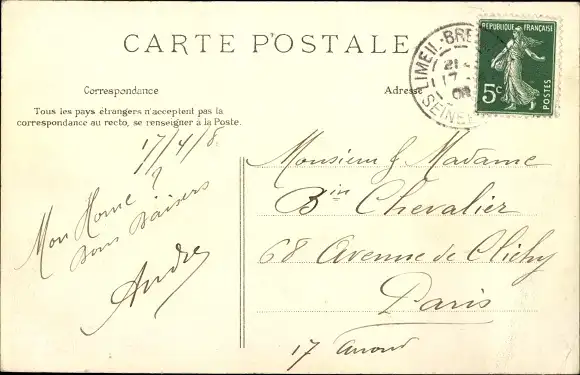 CARTE POSTALE
RÉPUBLIQUE FRANÇAISE
5c
POSTES
LIMEIL-BRE
21
17
SEINE
Correspondance
Adresse
Tous les pays étrangers n'acceptent pas la
correspondance au recto, se renseigner à la Poste.
17/4/8.
Mon Home ?
Bons Baisers
André
Monsieur & Madame
Bin Chevalier
68 Avenue de Clichy
Paris
17 arrond